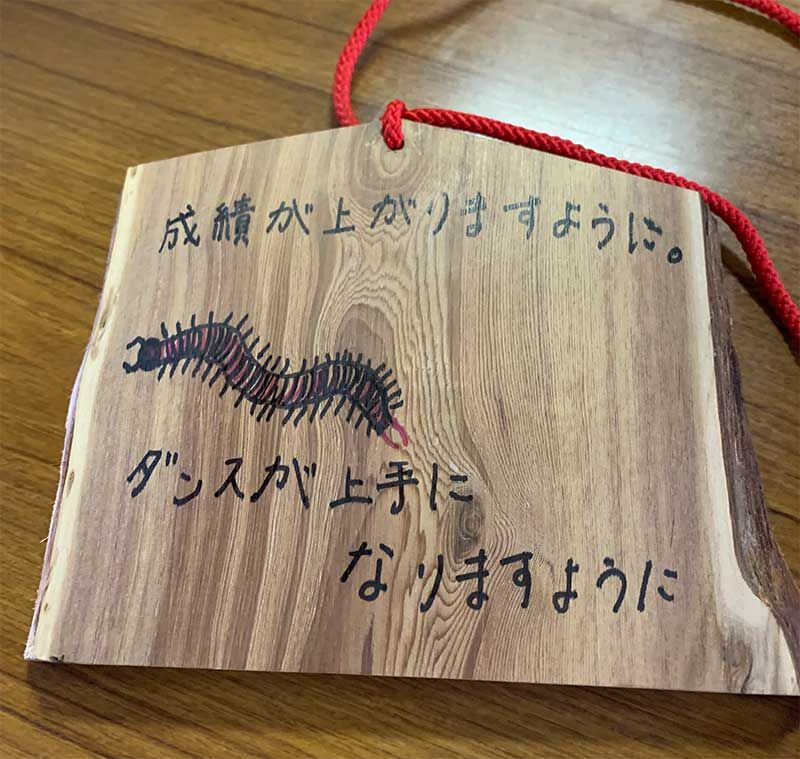 成績が上がりますように。
ダンスが上手に
なりますように